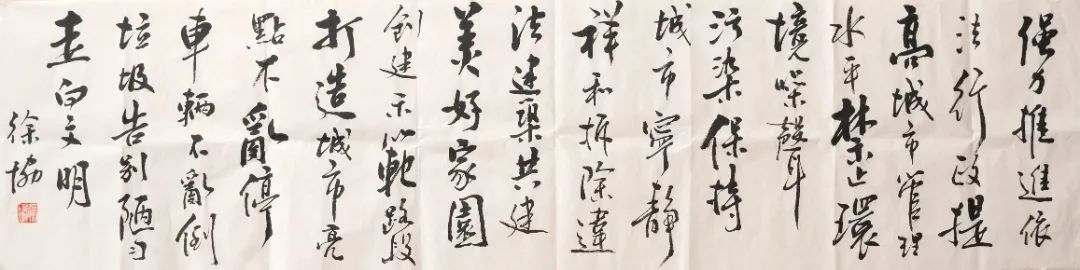 强力推進依
法行政提
高城市管理
水平禁止環
境噪聲
污染保持
城市寧静
祥和拆除違
法建築共建
美好家園
创建示範路段
打造城市亮
點不亂停
車輛不亂倒
垃圾告别陋习
走向文明
徐協